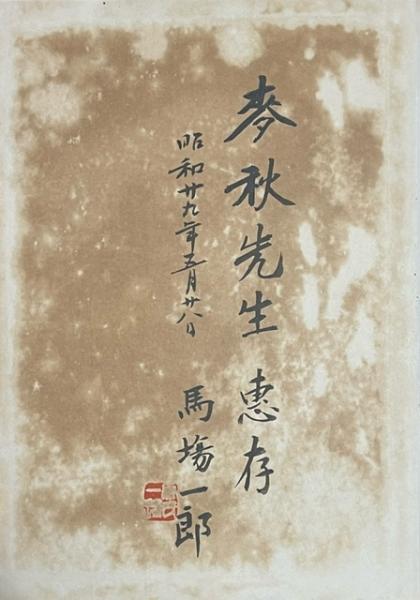 麥秋先生 惠存
昭和廿九年五月廿八日
馬場一郎